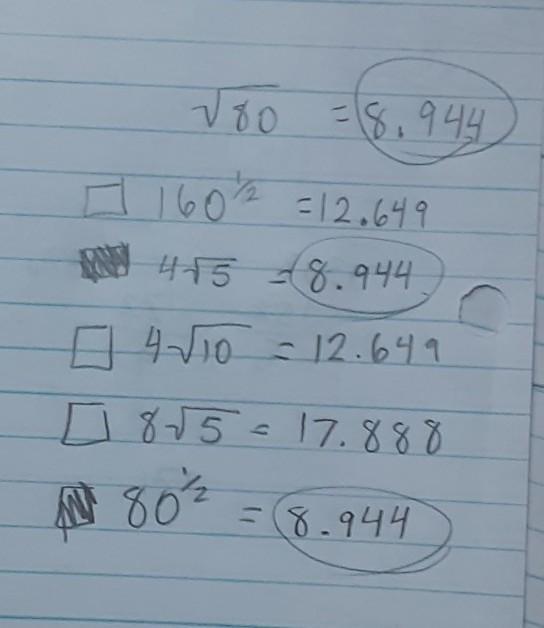 √80 = 8.944
□ 160^1/2 = 12.649
■ 4√5 = 8.944
□ 4√10 = 12.649
□ 8√5 = 17.888
■ 80^1/2 = 8.944